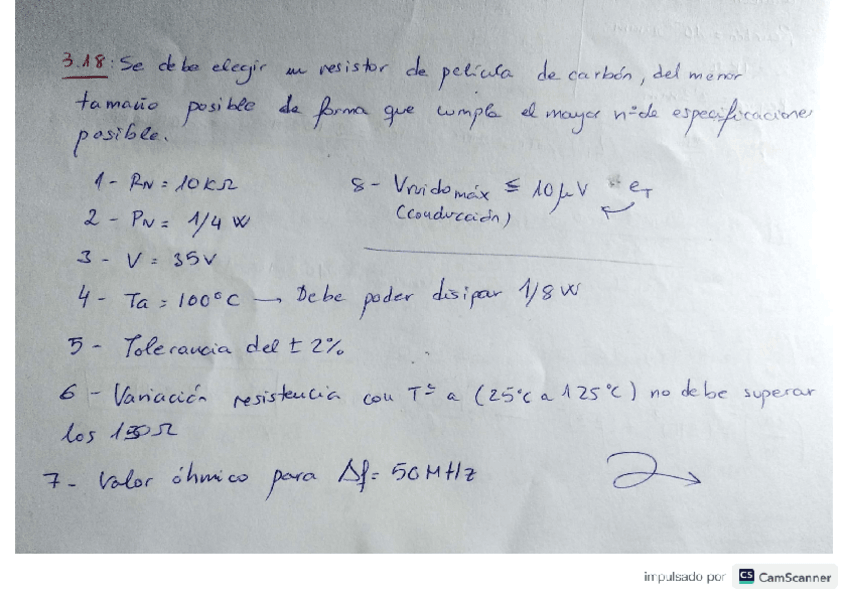 3.18: Se debe elegir un resistor de película de carbón, del menor
tamaño posible de forma que cumpla el mayor nº de especificaciones
posible.
1 - RN = 10KΩ
2 - PN = 1/4 W
3 - V = 35V
4 - Ta = 100°C → Debe poder disipar 1/8 W
5 - Tolerancia del ± 2%
6 - Variación resistencia con Tª a (25°C a 125°C) no debe superar
los 150Ω
7 - Valor óhmico para Δf = 50 MHz
8 - Vruido máx ≤ 10 μV eT
(conducción)
impulsado por CS CamScanner